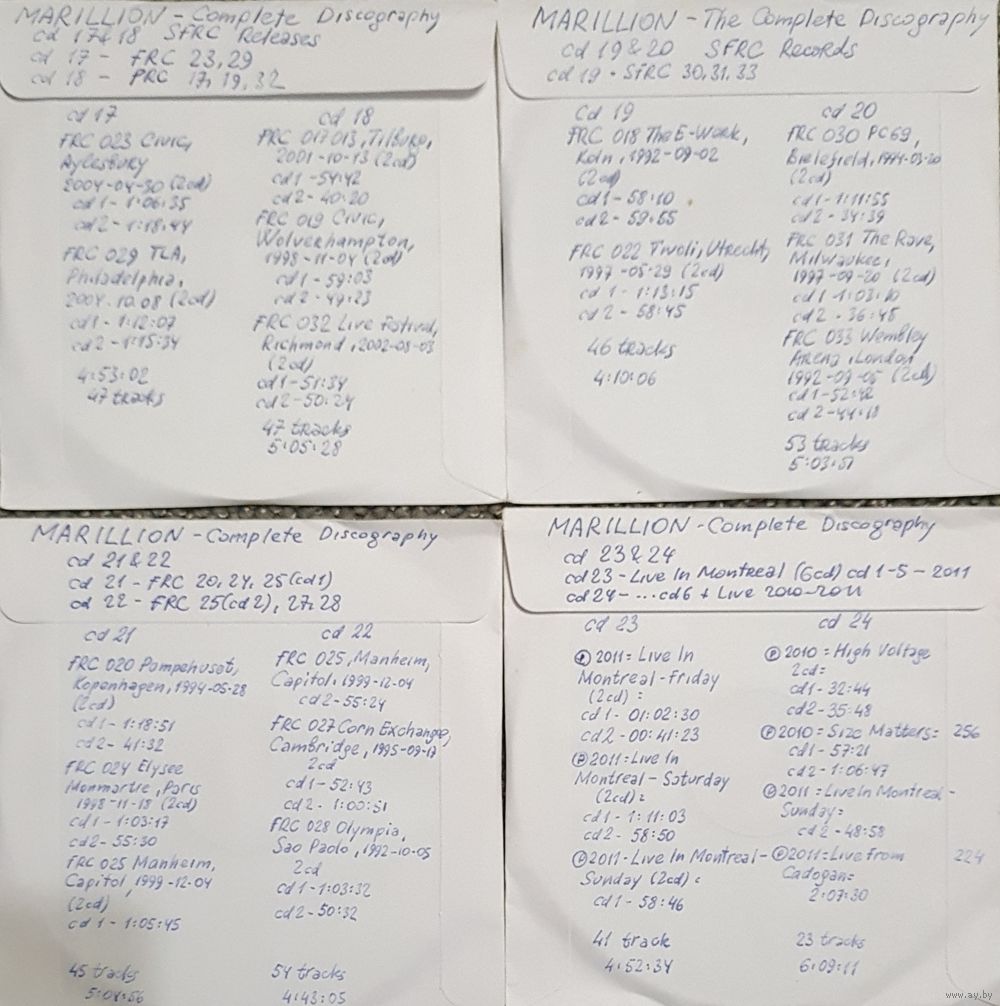 MARILLION - Complete Discography
cd 17&18 SFRC Releases
cd 17 - FRC 23,29
cd 18 - FRC 17, 19, 32
cd 17
FRC 023 Civic,
Aylesbury
2004-04-30 (2cd)
cd1 - 1:06:35
cd2 - 1:18:44
FRC 029 TLA,
Philadelphia,
2004.10.08 (2cd)
cd1 - 1:12:07
cd2 - 1:15:34
4:53:02
47 tracks
cd 18
FRC 017 013, Tilburg,
2001-10-13 (2cd)
cd1 - 54:42
cd2 - 40:20
FRC 019 Civic,
Wolverhampton,
1998-11-04 (2cd)
cd1 - 59:03
cd2 - 49:23
FRC 032 Live Festival,
Richmond, 2002-03-03
(2cd)
cd1 - 51:34
cd2 - 50:24
47 tracks
5:05:28
MARILLION - The Complete Discography
cd 19 & 20 SFRC Records
cd 19 - SFRC 30,31,33
Cd 19
FRC 018 The E-Werk,
Koln, 1992-09-02
(2cd)
cd1 - 58:10
cd2 - 59:55
FRC 022 Tivoli, Utrecht,
1997-05-29 (2cd)
cd1 - 1:13:15
cd2 - 58:45
46 tracks
4:10:06
cd 20
FRC 030 PC69,
Bielefield, 1994-03-20
(2cd)
cd1 - 1:11:55
cd2 - 34:39
FRC 031 The Rave,
Milwaukee,
1997-09-20 (2cd)
cd1 - 1:03:10
cd2 - 36:45
FRC 033 Wembley
Arena, London
1992-09-05 (2cd)
cd1 - 52:42
cd2 - 44:18
53 tracks
5:03:51
MARILLION - Complete Discography
cd 21 & 22
cd 21 - FRC 20, 24, 25(cd1)
cd 22 - FRC 25(cd2), 27, 28
cd 21
FRC 020 Pumpehuset,
Kopenhagen, 1994-05-28
(2cd)
cd1 - 1:18:51
cd2 - 41:32
FRC 024 Elysee
Monmartre, Paris
1998-11-18 (2cd)
cd1 - 1:03:17
cd2 - 55:30
FRC 025 Manheim,
Capitol, 1999-12-04
(2cd)
cd1 - 1:05:45
45 tracks
5:04:56
cd 22
FRC 025, Manheim,
Capitol, 1999-12-04
cd2 - 55:24
FRC 027 Corn Exchange,
Cambridge, 1995-09-17
2cd
cd1 - 52:43
cd2 - 1:00:51
FRC 028 Olympia,
Sao Paolo, 1992-10-05
2cd
cd1 - 1:03:32
cd2 - 50:32
54 tracks
4:43:05
MARILLION - Complete Discography
cd 23 & 24
cd 23 - Live In Montreal (6cd) cd 1-5 - 2011
cd 24 - ... cd6 + Live 2010-2011
cd 23
2011 = Live In
Montreal - Friday
(2cd) :
cd1 - 01:02:30
cd2 - 00:41:23
2011 = Live In
Montreal - Saturday
(2cd) :
cd1 - 1:11:03
cd2 - 58:50
2011 - Live In Montreal -
Sunday (2cd) :
cd1 - 58:46
41 track
4:52:34
cd 24
2010 = High Voltage
2cd =
cd1 - 32:44
cd2 - 35:48
2010 = Size Matters = 256
cd1 - 57:21
cd2 - 1:06:47
2011 = Live In Montreal -
Sunday =
cd2 - 48:58
2011 = Live from 224
Cadogan =
2:07:30
23 tracks
6:09:11
www.ay.by